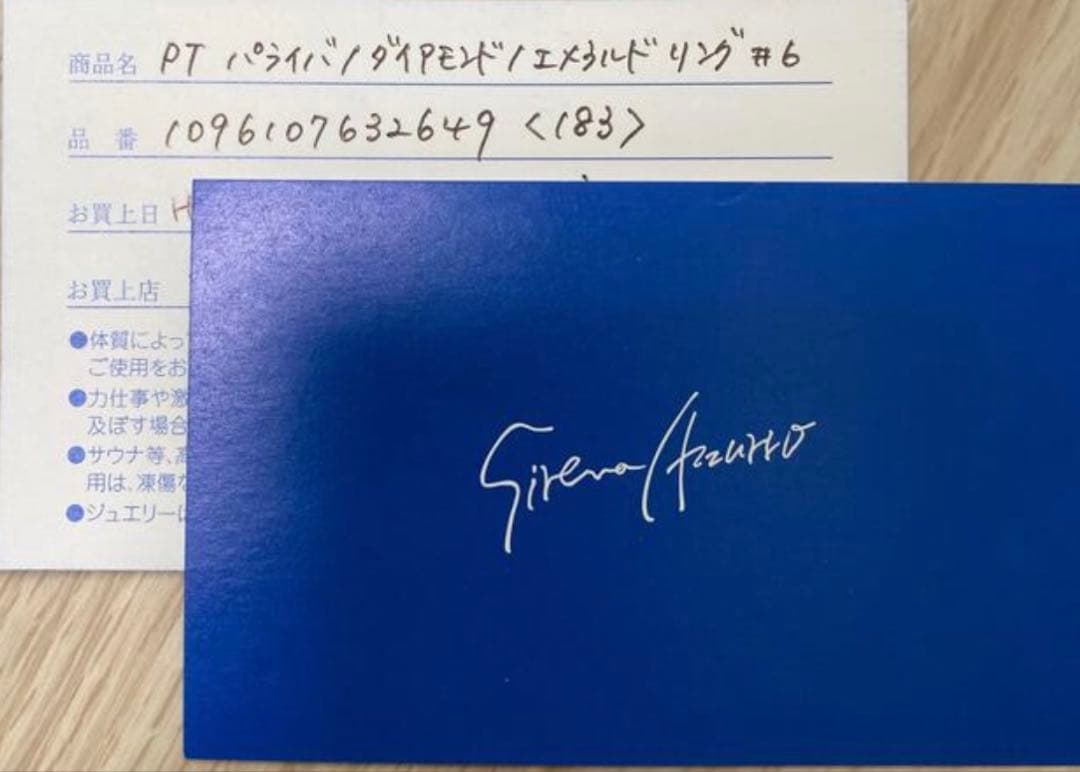 商品名 PT パライバ/ダイヤモンド/エメラルド リング #6
品 番 1096107632649 <183>
お買上日 H
お買上店
●体質によっ
ご使用をお
●力仕事や激
及ぼす場合
●サウナ等、高
用は、凍傷な
●ジュエリーは
Sirena Azzurro